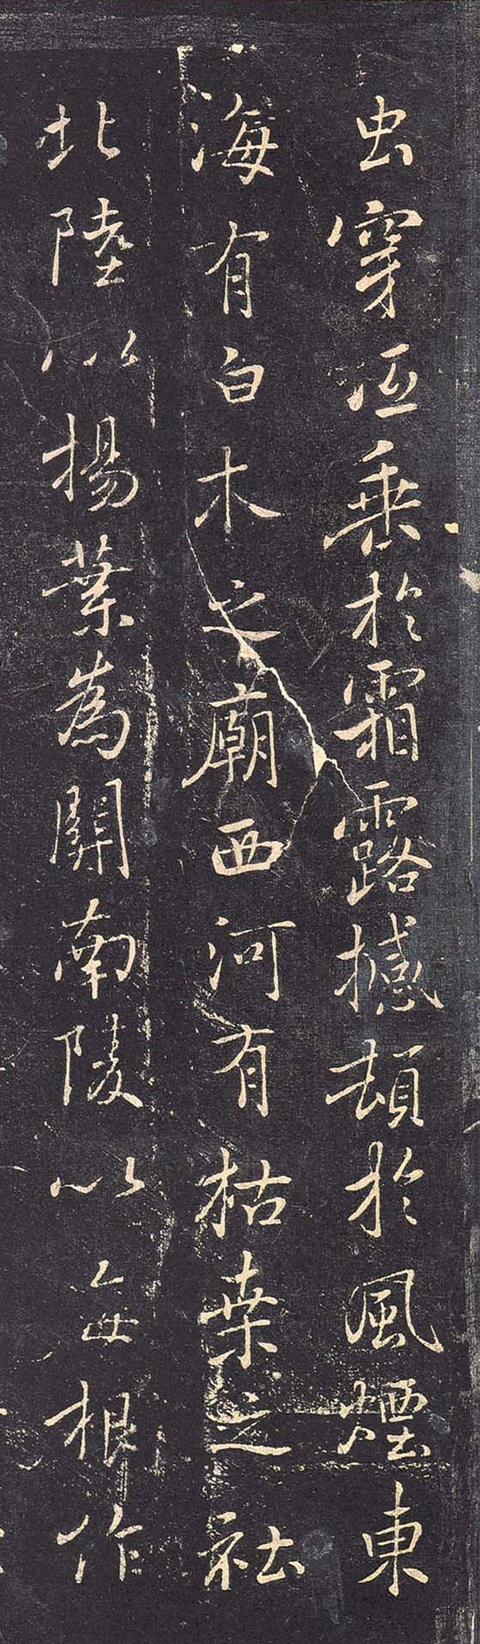 虫穿低垂於霜露撼頓於風煙東
海有白木之廟西河有枯桑之社
北陸以楊葉為關南陵以每根作